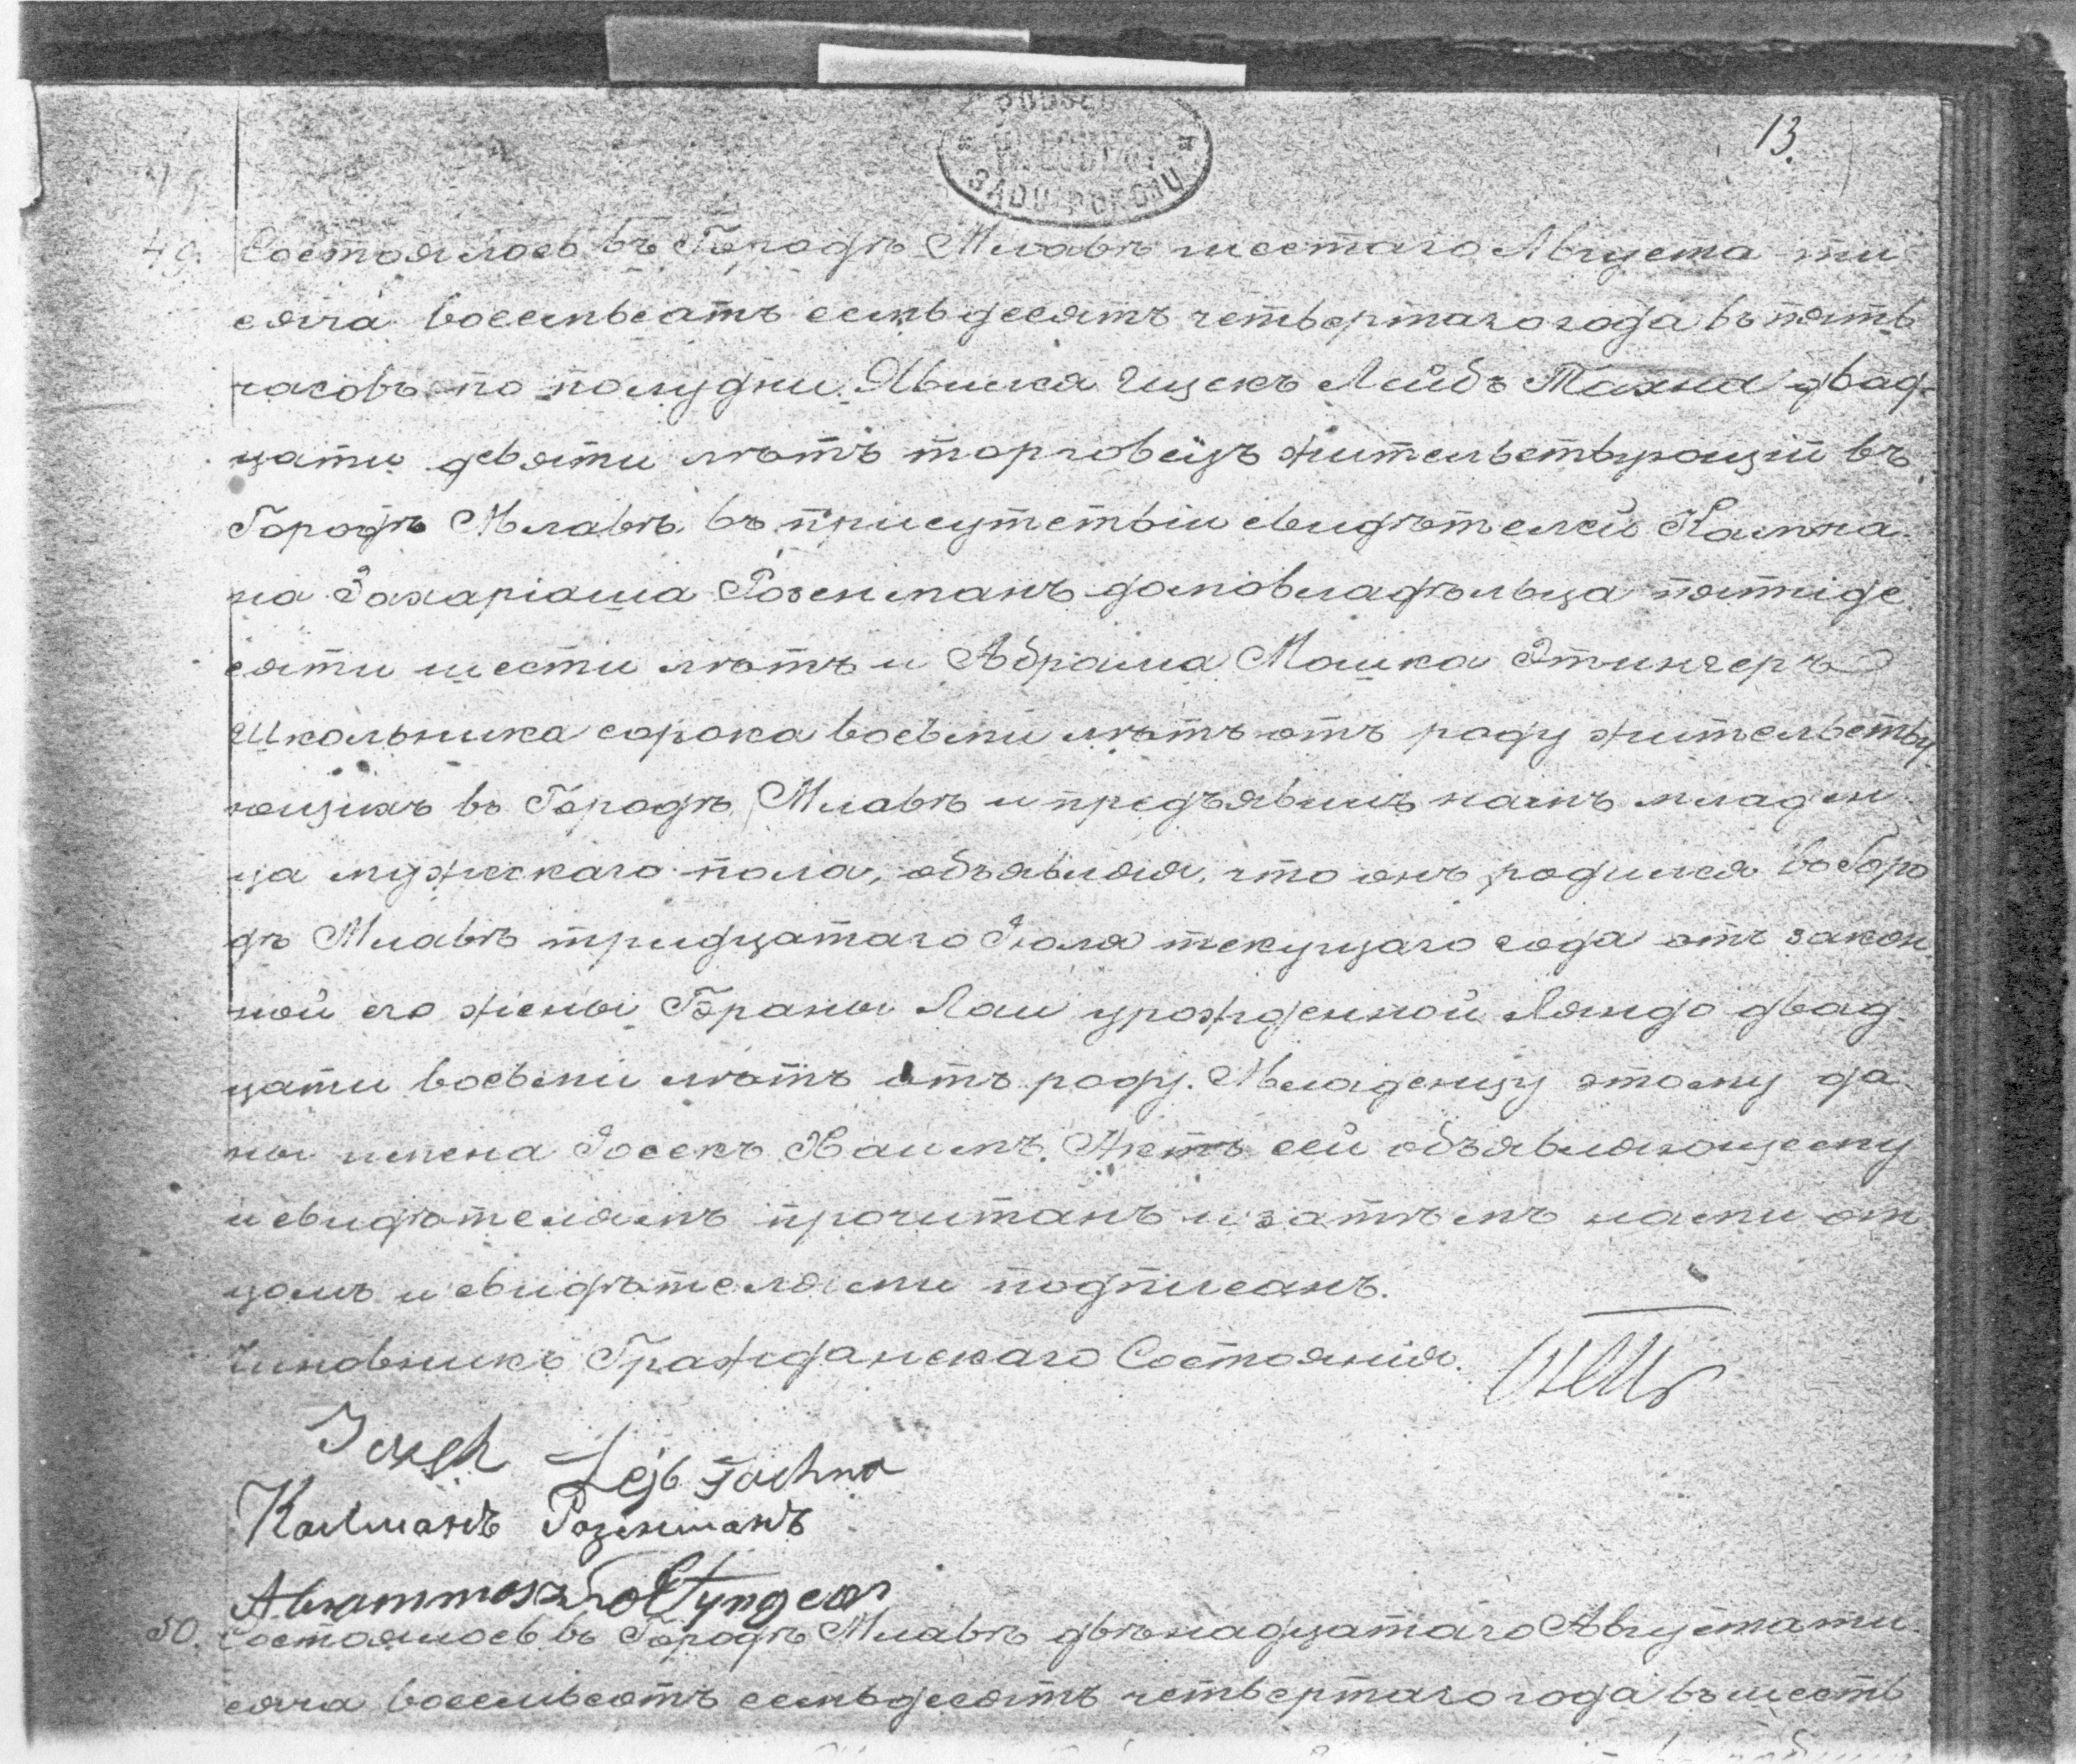 13.
49. Состоялось въ Городѣ Млавѣ шестаго Августа ты
сяча восемьсотъ семьдесятъ четвертаго года въ пять
часовъ по полудни. Явился Ицекъ Лейбъ Тахна двад-
цати девяти лѣтъ торговецъ жительствующій въ
Городѣ Млавѣ въ присутствіи свидѣтелей Кальма
на Захаріаша Розенманъ домовладѣльца пятиде
сяти шести лѣтъ и Абрама Мошка Этингеръ
школьника сорока восьми лѣтъ отъ роду жительству
ющихъ въ Городѣ Млавѣ и предъявилъ намъ младен
ца мужескаго пола, объявляя, что онъ родился въ Горо
дѣ Млавѣ тридцатаго Іюля текущаго года отъ закон
ной его жены Браны Лаи урожденной Ляндо двад-
цати восьми лѣтъ отъ роду. Младенцу этому да
ны имена Іосекъ Хаимъ. Актъ сей объявляющему
и свидѣтелямъ прочитанъ и затѣмъ нами от
цомъ и свидѣтелями подписанъ.
Чиновникъ Гражданскаго Состоянія.
Icyek Lejb Tachna
Кальманъ Розенманъ
50. Состоялось въ Городѣ Млавѣ двѣнадцатаго Августа ты
сяча восемьсотъ семьдесятъ четвертаго года въ шесть